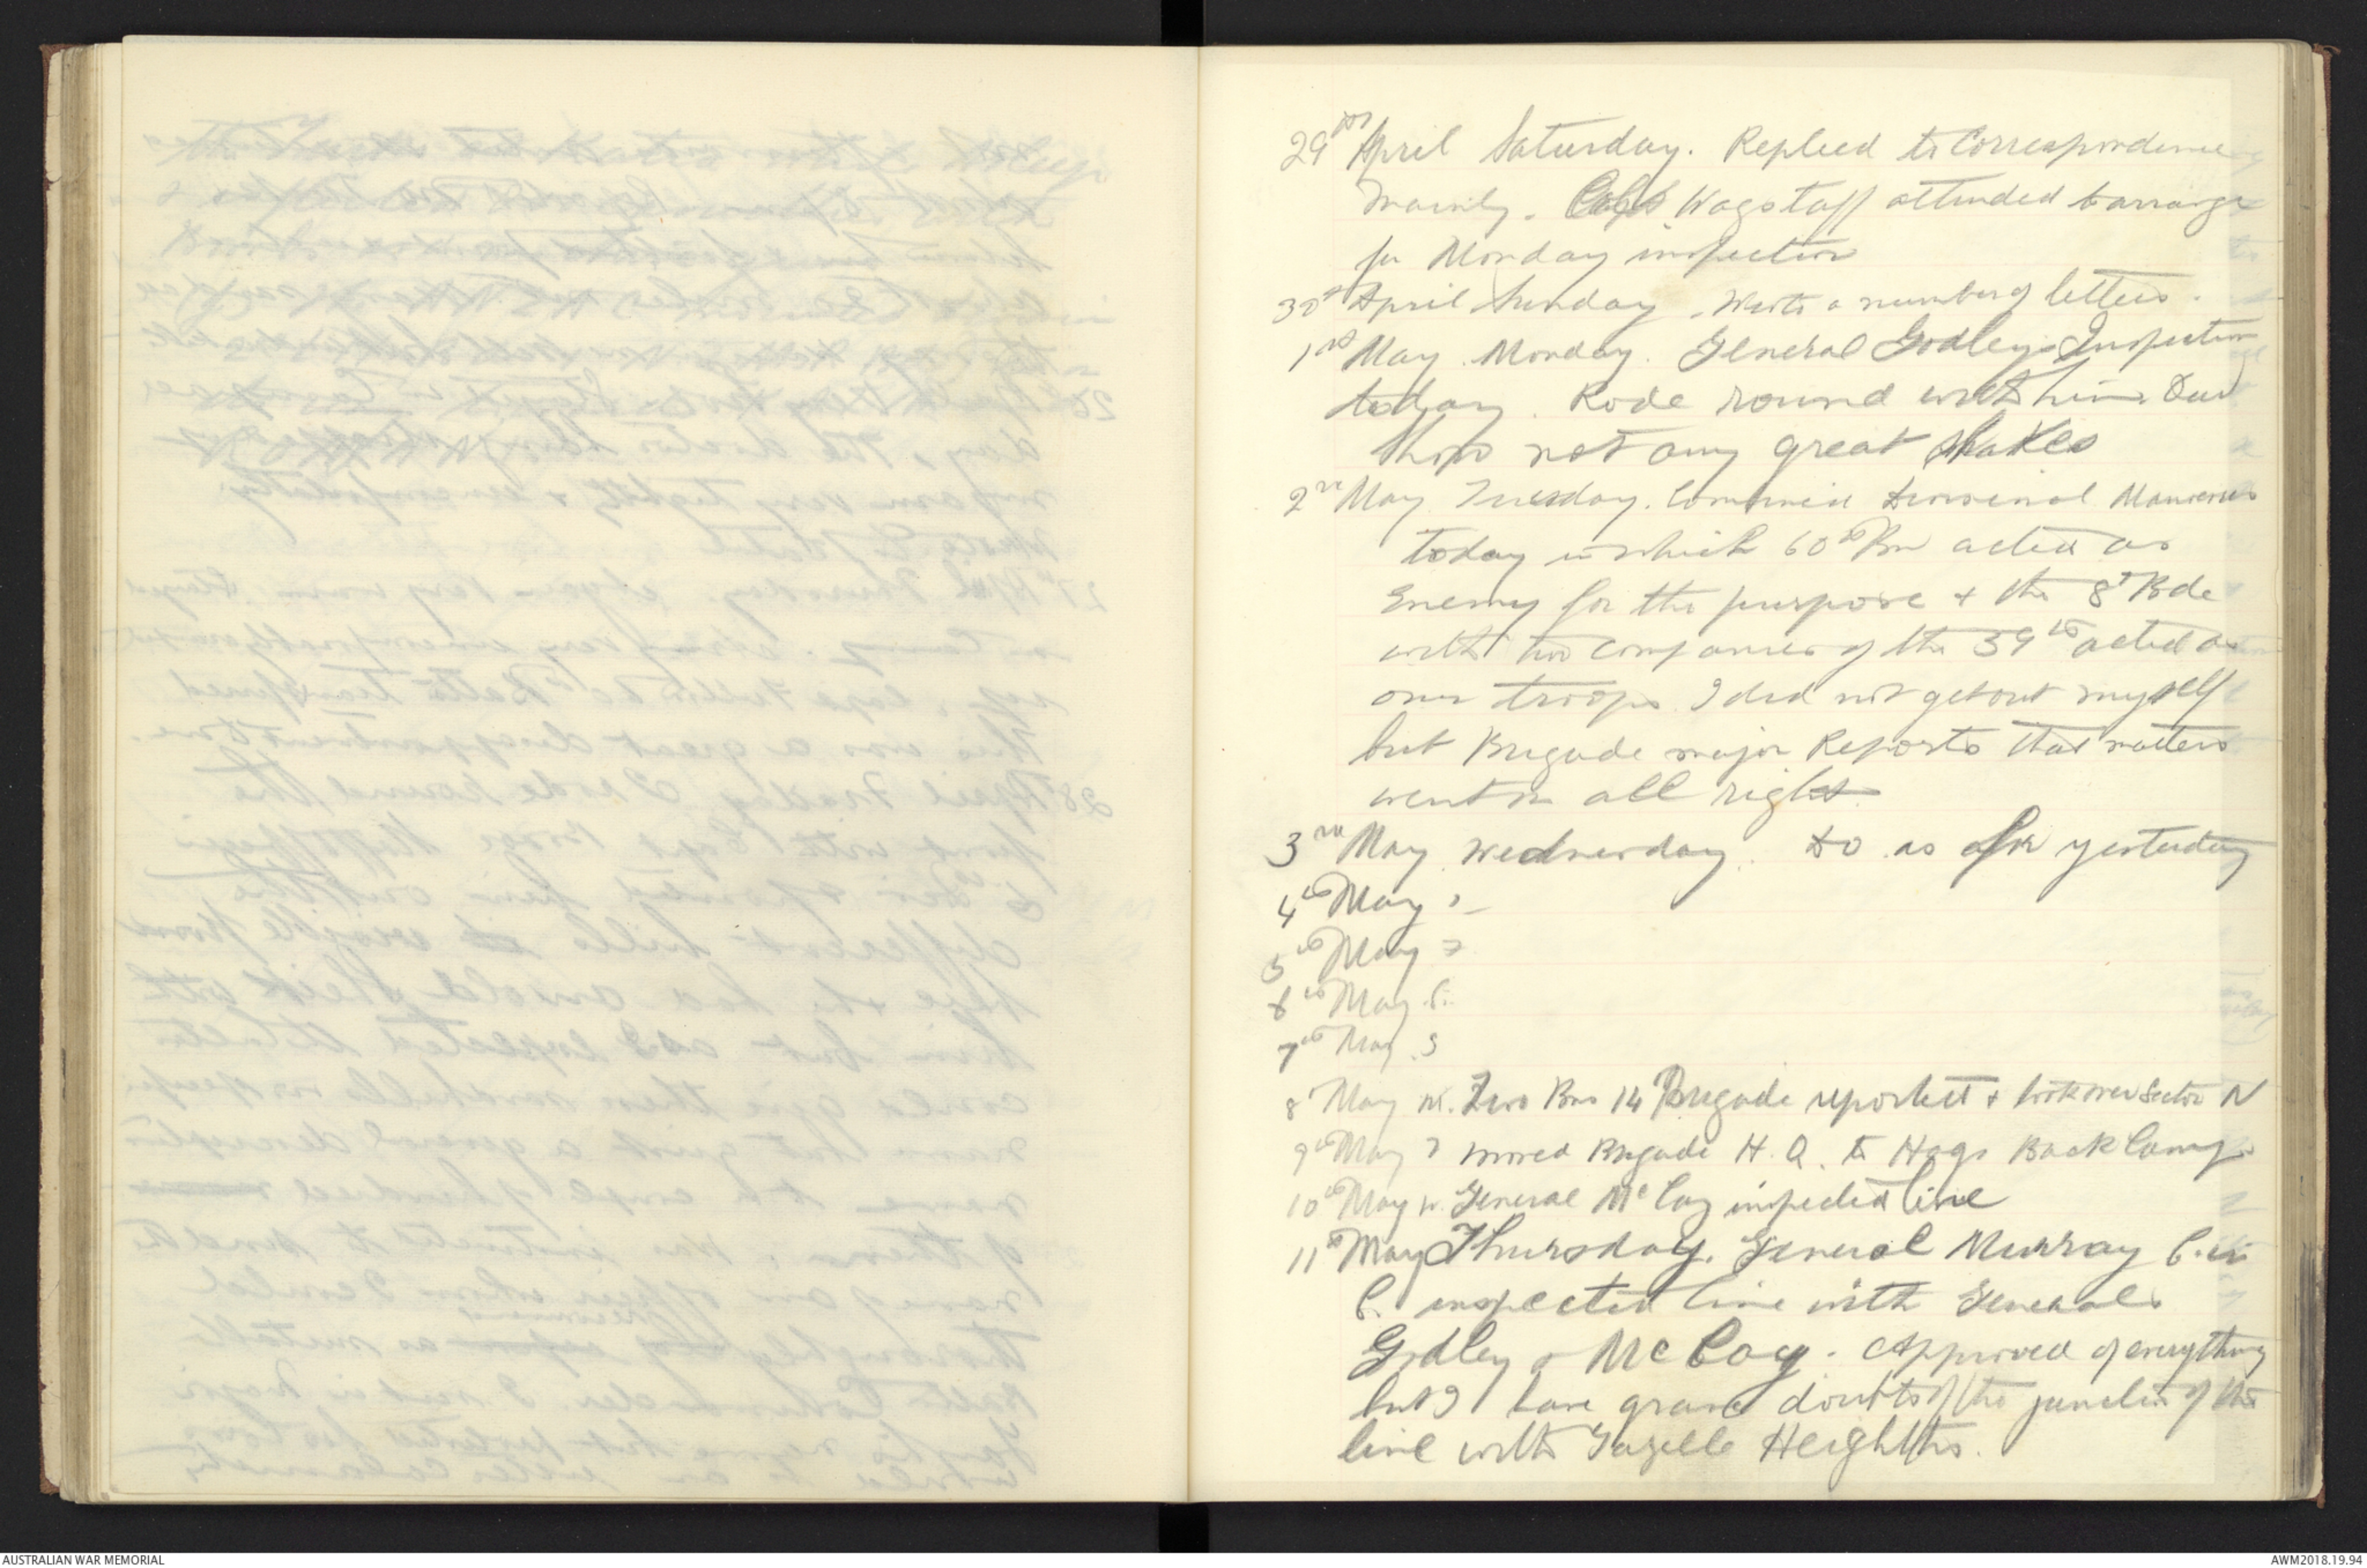 29th April Saturday. Replied to Correspondence
mainly. Capt Wagstaff attended to arrange
for Monday inspection
30th April Sunday. Wrote a number of letters.
1st May. Monday. General Godley's Inspection
today. Rode round with him. Dust
Show not any great shakes
2nd May Tuesday. Commenced Divisional Manoeuvres
today in which 60th Bn acted as
Enemy for the purpose & the 8th Bde
with two companies of the 59th acted as
our troops. I did not get out myself
but Brigade major Reports that matters
went on all right.
3rd May Wednesday. Do as for yesterday
4th May
5th May
6th May S.
7th May. S
8 May M. Two Bns 14 Brigade reported & took over Sector N
9th May T moved Brigade H.Q. to Hogs Back Camp.
10th May W. General McCay inspected line
11th May Thursday. General Murray C. in
C. inspected line with Generals
Godley & McCay. Approved of everything
but I have grave doubts of the junction of the
line with Gazelle Heights.
AUSTRALIAN WAR MEMORIAL
AWM2018.19.94